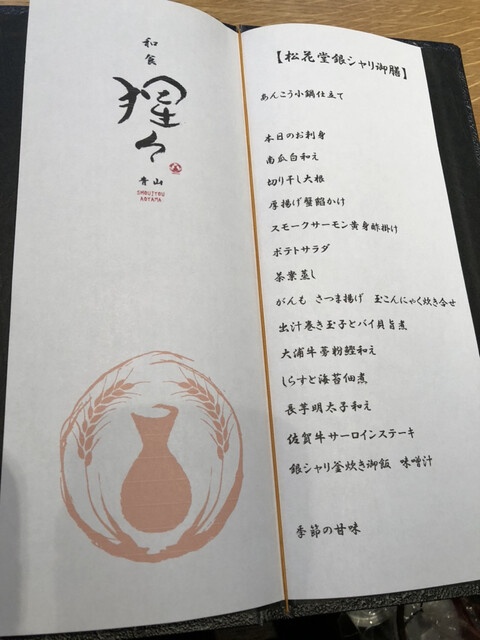 和食
猩々
青山
SHOUJYOU
AOYAMA
【松花堂銀シャリ御膳】
あんこう小鍋仕立て
本日のお刺身
南瓜白和え
切り干し大根
厚揚げ蟹餡かけ
スモークサーモン黄身酢掛け
ポテトサラダ
茶業蒸し
がんも さつま揚げ 玉こんにゃく炊き合せ
出汁巻き玉子とバイ貝旨煮
大浦牛蒡粉鰹和え
しらすと海苔佃煮
長芋明太子和え
佐賀牛サーロインステーキ
銀シャリ釜炊き御飯 味噌汁
季節の甘味